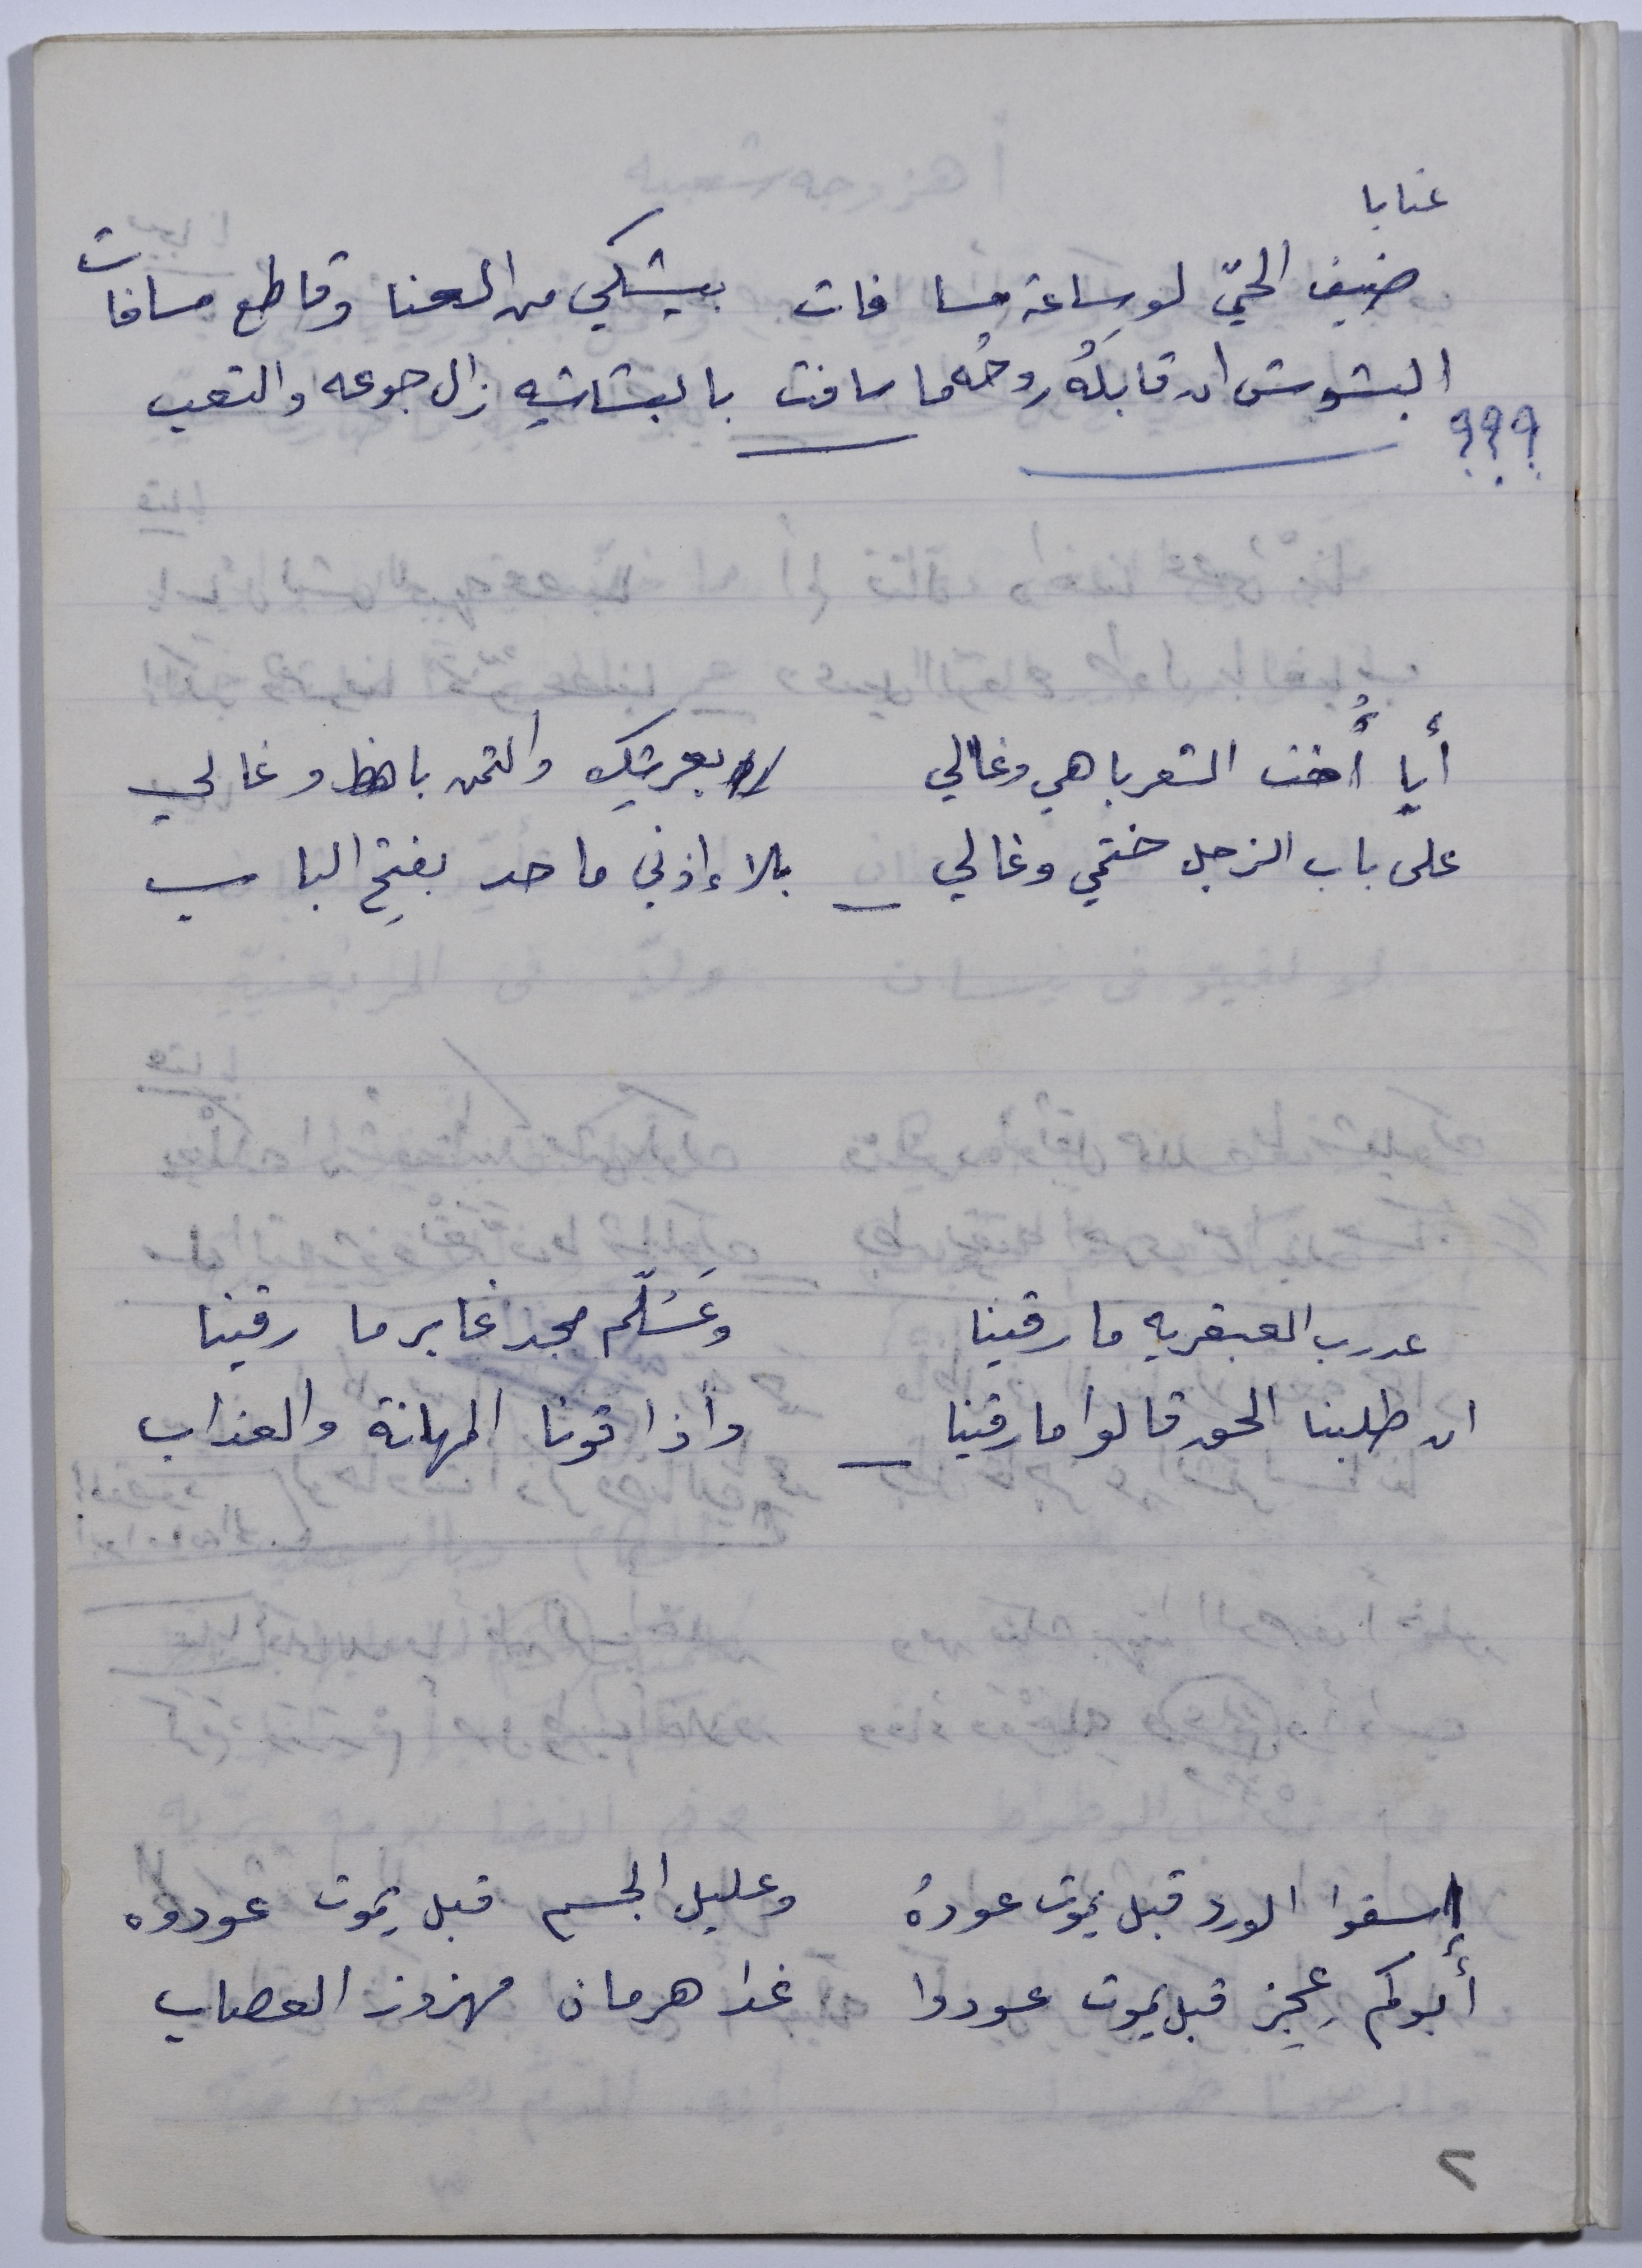 عتابا
ضيف الحيّ لو ساعة مسا فات بيشكي من العنا وقاطع مسافات
البشوش ان قابلهُ روحُه ما سافت بالبشاشيه زال جوعه والتعب
؟؟؟
أيا أُخت الشعر باهي وغالي لا بعرتيك والثمن باهظ وغالي
على باب الزجل ختمي وغالي بلا إذني ما حد بفتِح الباب
عدرب العبقريه ما رقينا وعَسُلّم مجد غابر ما رقينا
ان طلبنا الحق قالوا مارقينا وأذاقونا المهانة والعذاب
إسقوا الورد قبل يموت عودهُ وعليل الجسم قبل يموت عودوه
أبوكم عِجِز قبل يموت عودوا غدا هرمان مهزوز العصاب
٢